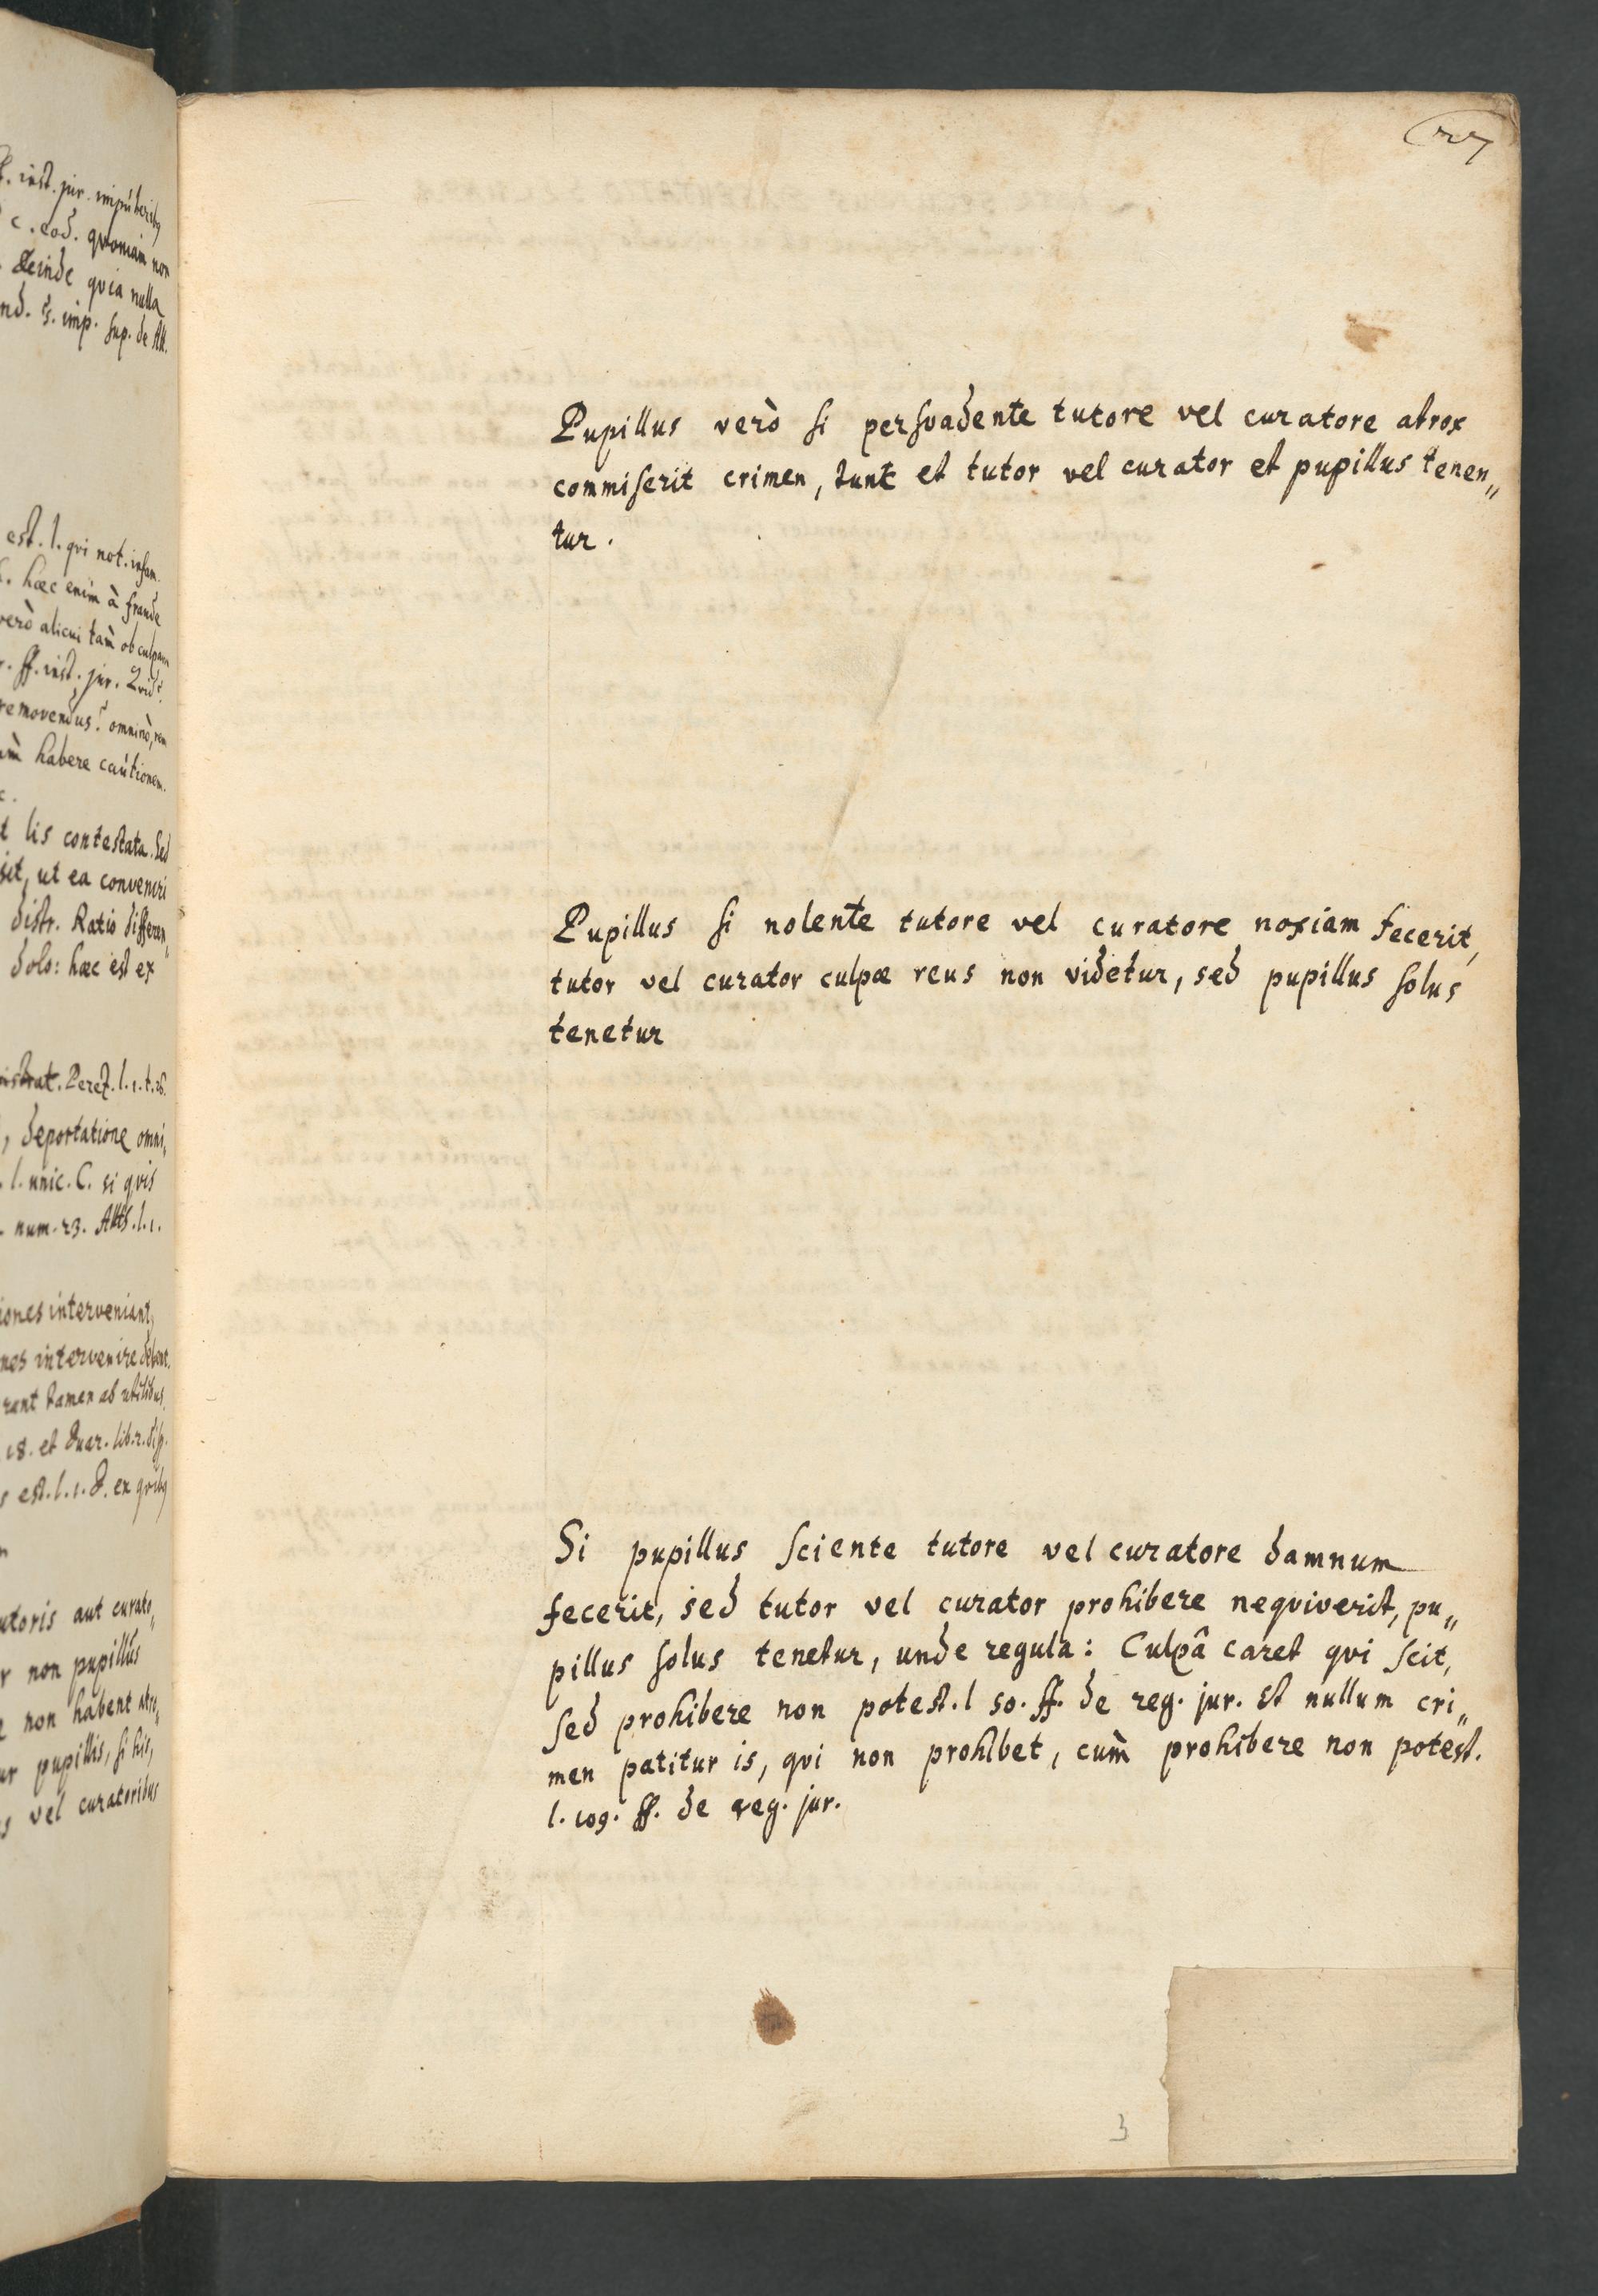 s. inst. jur. impuberib9
c. eod. quoniam non
deinde qvia nulla
nd. §. imp. sup. de Att.
est. l. qvi not. infam.
. hæc enim à fraude
verò alicui tam ob culpam
. ff. inst. jur. Qvid
removendus? omninò,
um habere cautionem.
t lis contestata. Sed
sit, ut ea conveniri
distr. Ratio differen„
dolo: hæc est ex
Perez. l. 1. t. 28.
, deportatione omni„
. l. unic. C. si qvis
num. 23. l. 1.
iones interveniant,
nes intervenire debent.
rant tamen ab utilibus
18. et Duar. lib. 2. disp.
s est. l. 1. ex qvib9
utoris aut curato„
r non pupillus
non habent atro„
ur pupillis, si his,
s vel curatoribus
227
Pupillus verò si persvadente tutore vel curatore atrox
commiserit crimen, tunc et tutor vel curator et pupillus tenen„
tur.
Pupillus si nolente tutore vel curatore noxiam fecerit,
tutor vel curator culpæ reus non videtur, sed pupillus solus
tenetur
Si pupillus sciente tutore vel curatore damnum
fecerit, sed tutor vel curator prohibere neqviverit, pu„
pillus solus tenetur, unde regula: Culpâ caret qvi scit,
sed prohibere non potest. l 50. ff. de reg. jur. et nullum cri„
men patitur is, qvi non prohibet, cùm prohibere non potest.
l. 109. ff. de reg. jur.
3